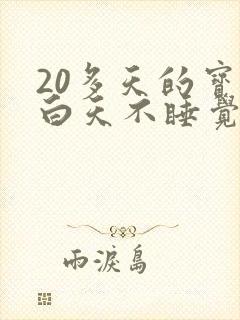 20多天的寳
白天不睡覺
雨淚島